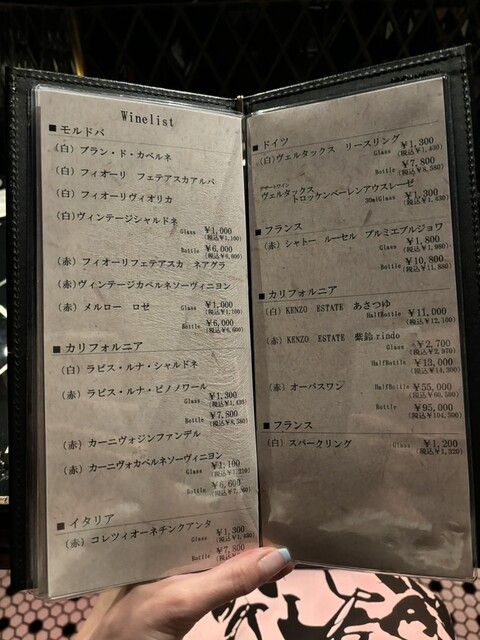 Winelist
■モルドバ
(白) ブラン・ド・カベルネ
(白) フィオーリ　フェテアスカアルバ
(白) フィオーリヴィオリカ
(白) ヴィンテージシャルドネ
Glass ¥1,000
(税込¥1,100)
Bottle ¥6,000
(税込¥6,600)
(赤) フィオーリフェテアスカ　ネアグラ
(赤) ヴィンテージカベルネソーヴィニヨン
(赤) メルロー　ロゼ
Glass ¥1,000
(税込¥1,100)
Bottle ¥6,000
(税込¥6,600)
■カリフォルニア
(白) ラピス・ルナ・シャルドネ
(赤) ラピス・ルナ・ピノノワール
Glass ¥1,300
(税込¥1,430)
Bottle ¥7,800
(税込¥8,580)
(赤) カーニヴォジンファンデル
(赤) カーニヴォカベルネソーヴィニヨン
Glass ¥1,100
(税込¥1,210)
Bottle ¥6,600
(税込¥7,260)
■イタリア
(赤) コレツィオーネチンクアンタ
Glass ¥1,300
(税込¥1,430)
Bottle ¥7,800
■ドイツ
(白) ヴェルタックス　リースリング
Glass ¥1,300
(税込¥1,430)
Bottle ¥7,800
(税込¥8,580)
デザートワイン
ヴェルタックス
トロッケンベーレンアウスレーゼ
30mlGlass ¥1,300
(税込¥1,430)
■フランス
(赤) シャトー　ルーセル　プルミエブルジョワ
Glass ¥1,800
(税込¥1,980)
Bottle ¥10,800
(税込¥11,880)
■カリフォルニア
(白) KENZO　ESTATE　あさつゆ
HalfBottle ¥11,000
(税込¥12,100)
(赤) KENZO　ESTATE　紫鈴rindo
Glass ¥2,700
(税込¥2,970)
HalfBottle ¥13,000
(税込¥14,300)
(赤) オーパスワン
HalfBottle ¥55,000
(税込¥60,500)
Bottle ¥95,000
(税込¥104,500)
■フランス
(白) スパークリング
Glass ¥1,200
(税込¥1,320)